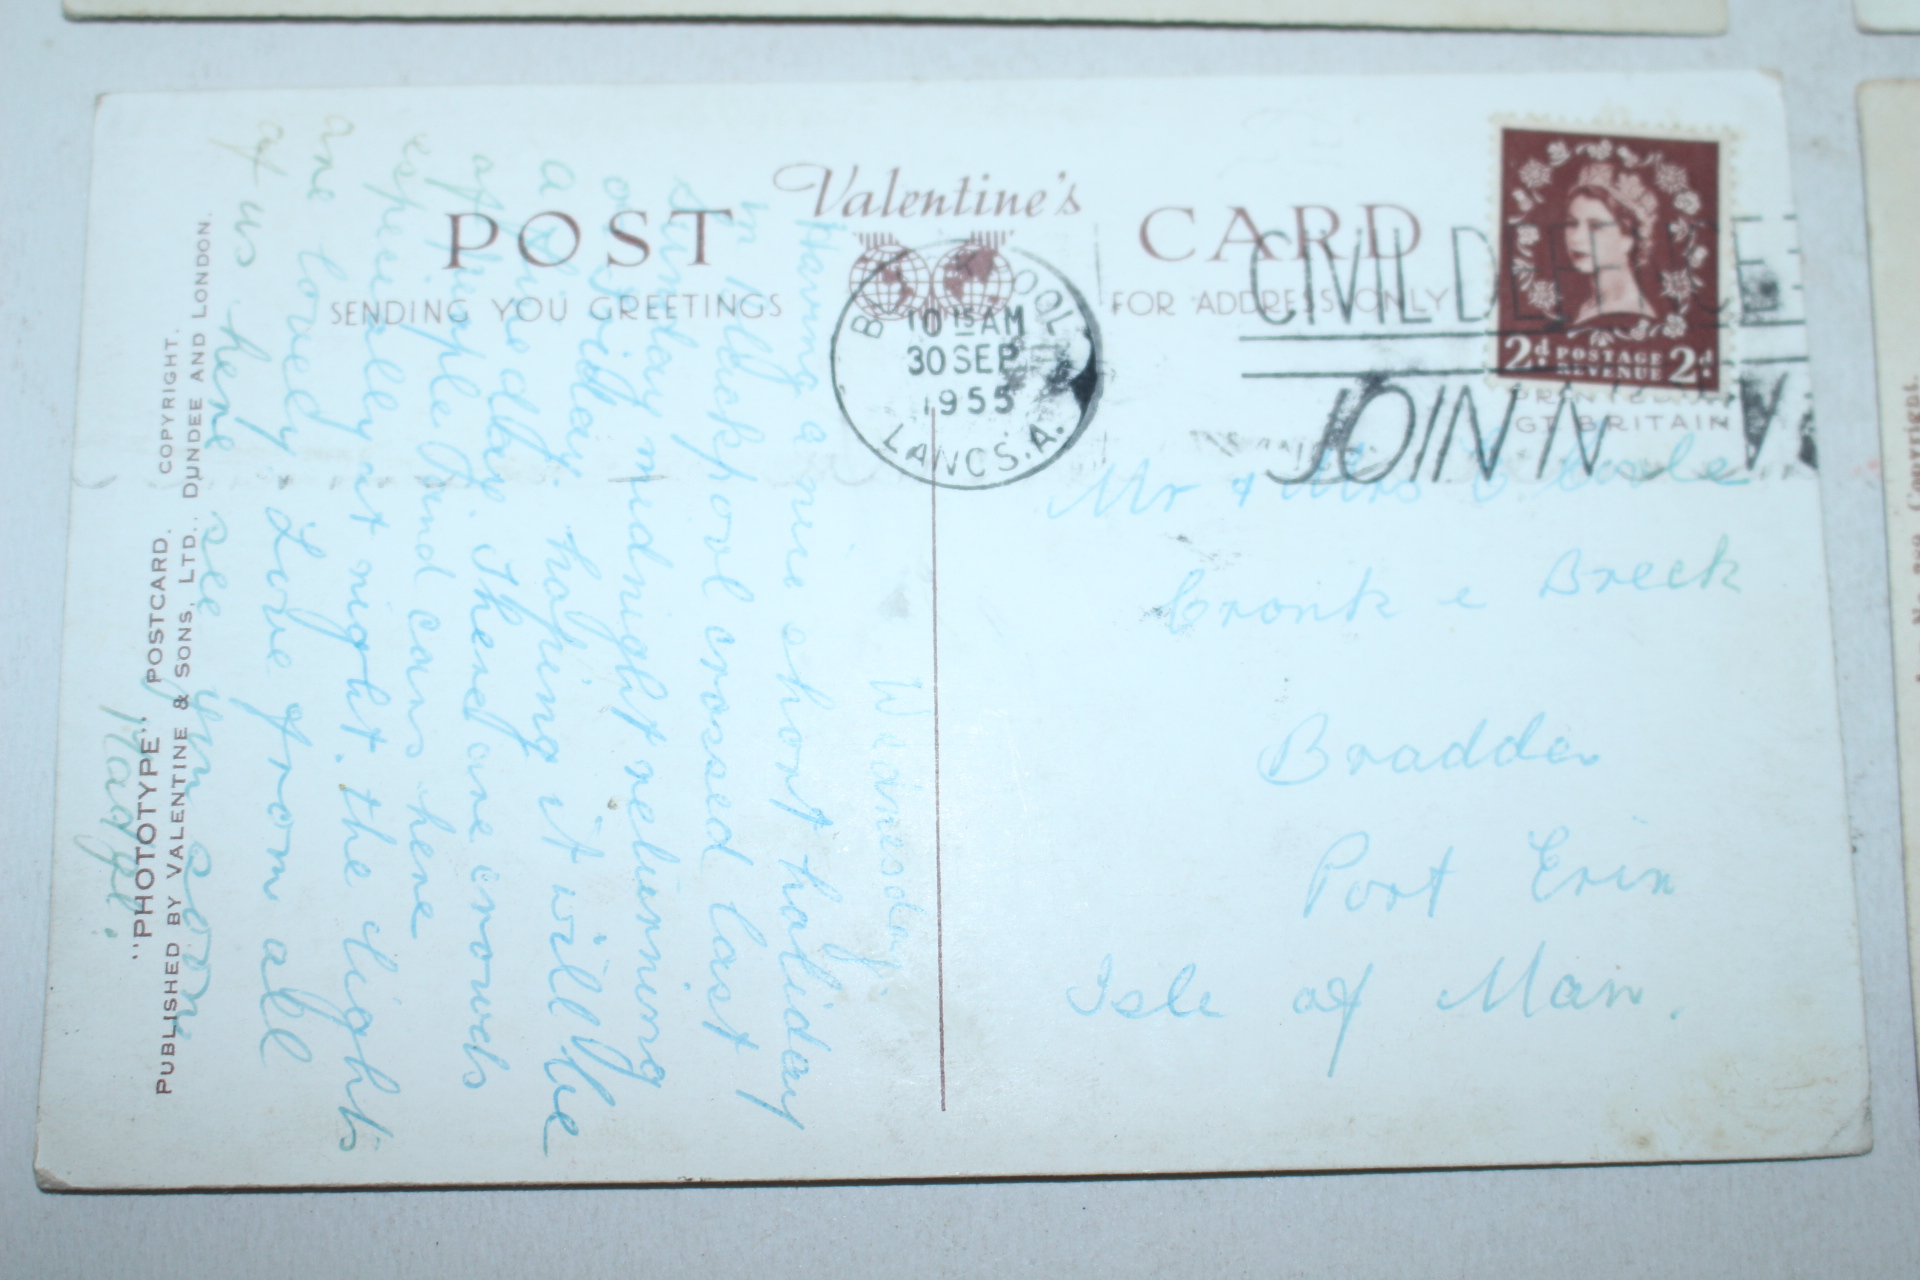 Valentine's
POST CARD
SENDING YOU GREETINGS
FOR ADDRESS ONLY
BLACKPOOL
10 15 AM
30 SEP
1955
LANCS. A.
CIVIL DEFENCE
JOIN N
2d POSTAGE REVENUE 2d
PRINTED IN
GT BRITAIN
Wednesday.
Having a nice short holiday
in Blackpool crossed last
Sunday midnight returning
on Friday. hoping it will be
a fine day. There are crowds
of people and cars here
especially at night. the lights
are lovely. Love from all
of us here see you soon
Madge.
Mr & Mrs
Cronk e Breck
Bradda
Port Erin
Isle of Man.
"PHOTOTYPE" POSTCARD. COPYRIGHT.
PUBLISHED BY VALENTINE & SONS, LTD., DUNDEE AND LONDON.
Copyright.